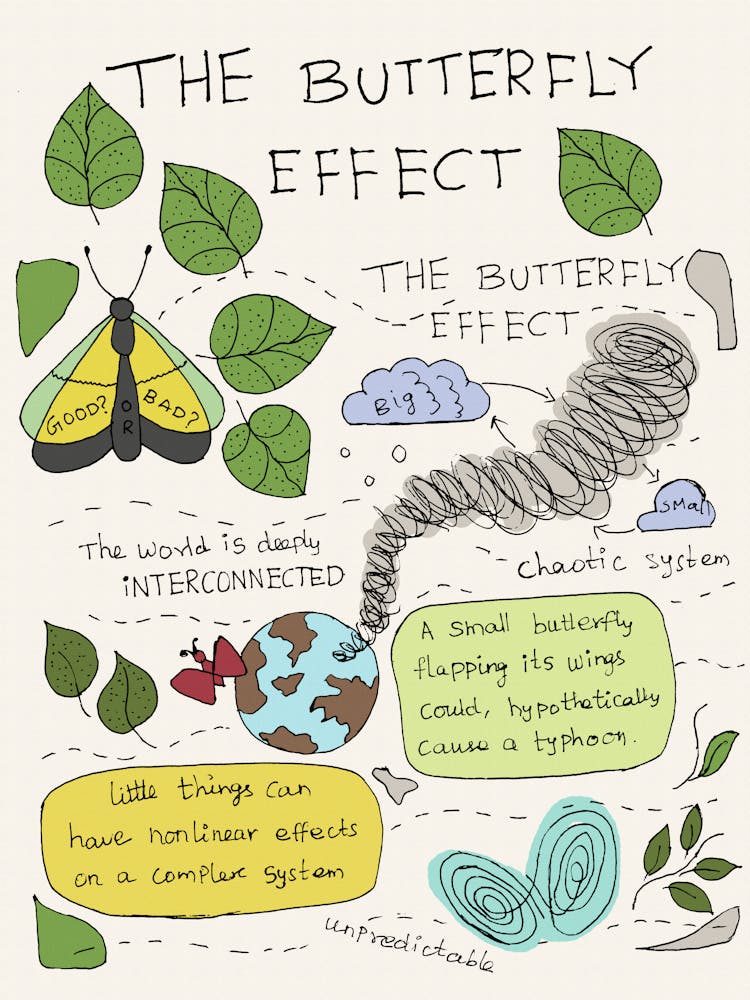 THE BUTTERFLY
EFFECT
THE BUTTERFLY
EFFECT
Big
GOOD?
OR
BAD?
Small
The world is deeply
iNTERCONNECTED
Chaotic system
A small butterfly
flapping its wings
could, hypothetically
cause a typhoon.
little things can
have nonlinear effects
on a complex system
unpredictable